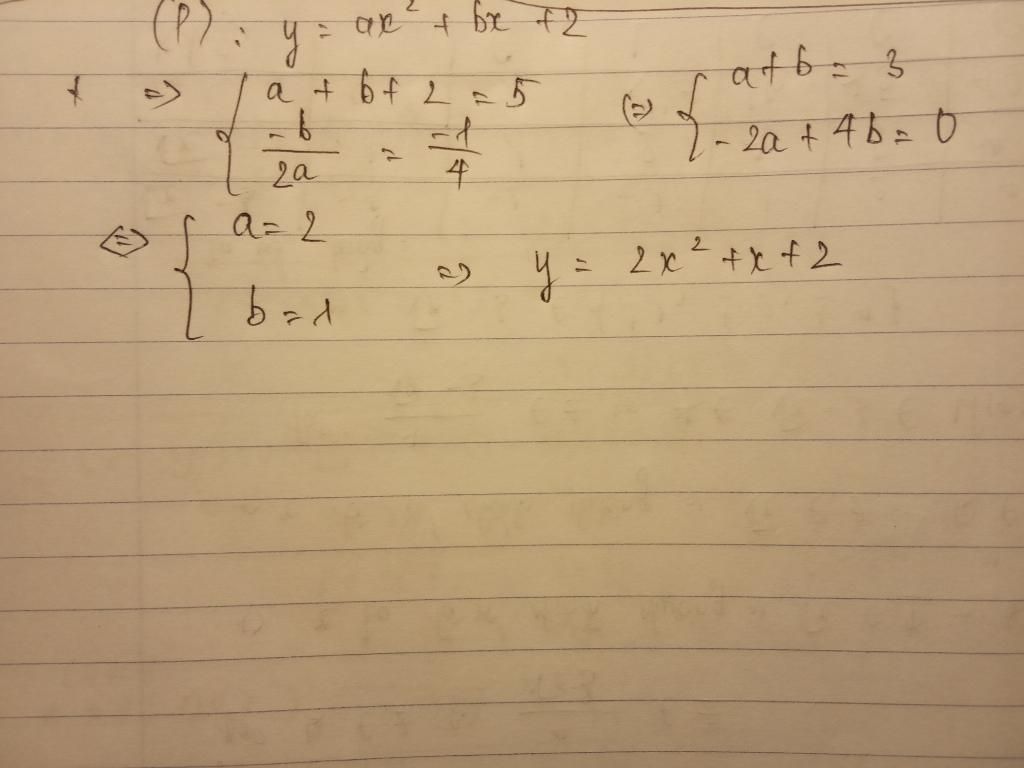 (P) : y = ax² + bx + 2
+ => { a + b + 2 = 5 (=) { a + b = 3
-b/2a = -1/4 - 2a + 4b = 0
<=> { a = 2
b = 1 => y = 2x² + x + 2